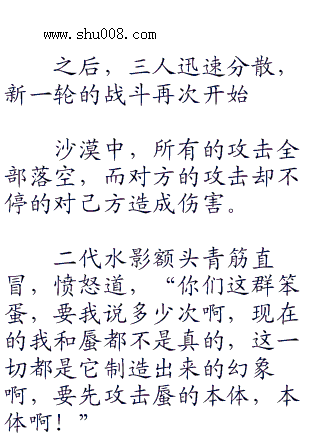 www.shu008.com
之后，三人迅速分散，
新一轮的战斗再次开始
沙漠中，所有的攻击全
部落空，而对方的攻击却不
停的对己方造成伤害。
二代水影额头青筋直
冒，愤怒道，“你们这群笨
蛋，要我说多少次啊，现在
的我和蜃都不是真的，这一
切都是它制造出来的幻象
啊，要先攻击蜃的本体，本
体啊！”